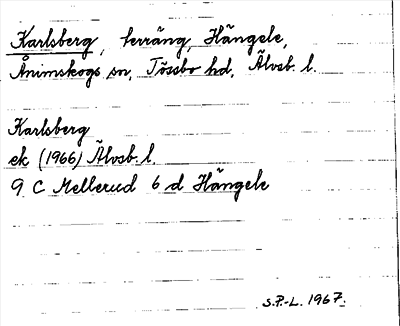 Karlsberg, terräng, Hängele,
Ånimskogs sn, Tössbo hd, Älvsb. l.
Karlsberg
ek (1966) Älvsb. l.
9 C Mellerud 6 d Hängele
S.P.-L. 1967.